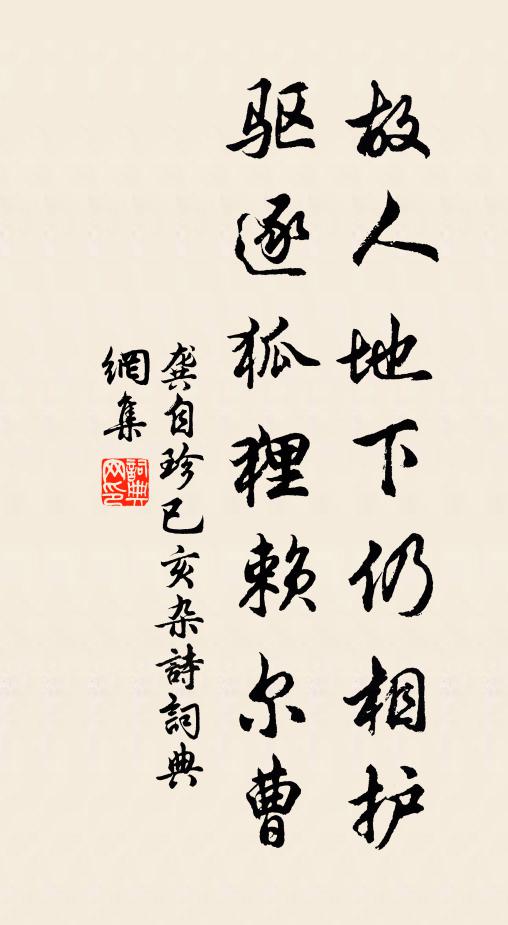 故人地下仍相护
驱逐狐狸赖尔曹
龚自珍己亥杂詩詞典
網集
詞典
网印